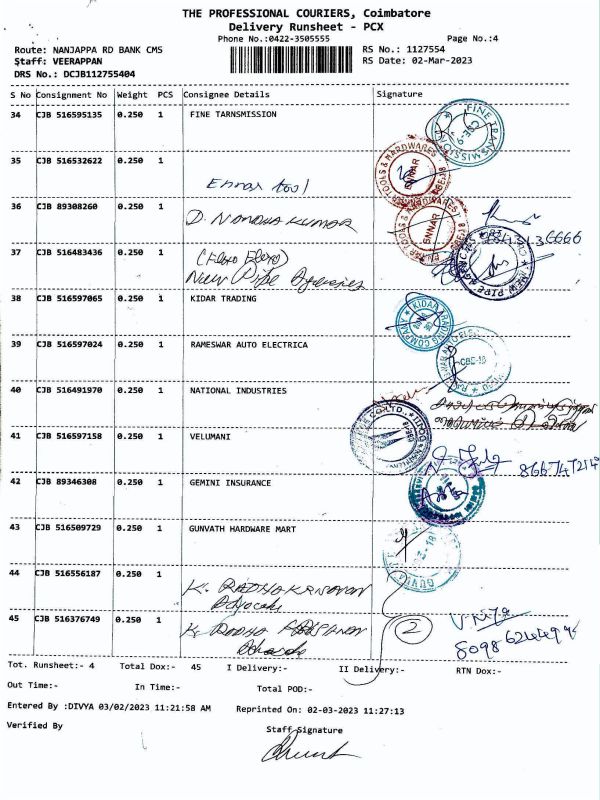 THE PROFESSIONAL COURIERS, Coimbatore
Delivery Runsheet - PCX
Phone No.:0422-3505555
Page No.:4
Route: NANJAPPA RD BANK CMS
RS No.: 1127554
Staff: VEERAPPAN
RS Date: 02-Mar-2023
DRS No.: DCJB112755404
S No Consignment No Weight PCS Consignee Details Signature
34 CJB 516595135 0.250 1 FINE TARNSMISSION
FINE TRANSMISSION
35 CJB 516532622 0.250 1
Ennar tool
ENNAR TOOLS & HARDWARES
36 CJB 89308260 0.250 1
D. NANDHA KUMAR
ENNAR TOOLS & HARDWARES
37 CJB 516483436 0.250 1
New Pipe Agencies
NEW PIPE AGENCIES
38 CJB 516597065 0.250 1 KIDAR TRADING
KIDAR TRADING COMPANY
39 CJB 516597024 0.250 1 RAMESWAR AUTO ELECTRICA
CBE-18
40 CJB 516491970 0.250 1 NATIONAL INDUSTRIES
41 CJB 516597158 0.250 1 VELUMANI
42 CJB 89346308 0.250 1 GEMINI INSURANCE
43 CJB 516509729 0.250 1 GUNVATH HARDWARE MART
44 CJB 516556187 0.250 1
K. RADHAKRISHNAN
Advocate
45 CJB 516376749 0.250 1
2
Tot. Runsheet:- 4 Total Dox:- 45 I Delivery:- II Delivery:- RTN Dox:-
Out Time:- In Time:- Total POD:-
Entered By :DIVYA 03/02/2023 11:21:58 AM Reprinted On: 02-03-2023 11:27:13
Verified By
Staff Signature